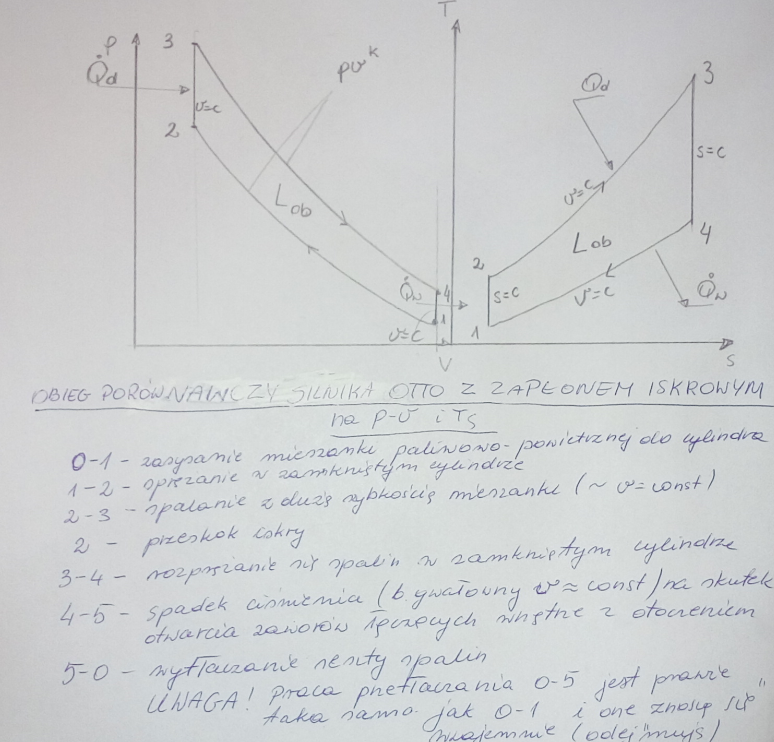 P
T
3
Q̇d
pv^k
Qd
3
v=c
2
s=c
v=c
Lob
Lob
4
2
Q̇w
4
s=c
v=c
Q̇w
1
v=c
1
V
s
OBIEG PORÓWNAWCZY SILNIKA OTTO Z ZAPŁONEM ISKROWYM
na p-v i Ts
0-1 - zasysanie mieszanki paliwowo-powietrznej do cylindra
1-2 - sprężanie w zamkniętym cylindrze
2-3 - spalanie z dużą szybkością mieszanki (~ v=const)
2 - przeskok iskry
3-4 - rozprężanie się spalin w zamkniętym cylindrze
4-5 - spadek ciśnienia (b. gwałtowny v≈const) na skutek
otwarcia zaworów łączących wnętrze z otoczeniem
5-0 - wytłaczanie reszty spalin
UWAGA! Praca przetłaczania 0-5 jest prawie
taka sama jak 0-1 i one znoszą się"
wzajemnie (odejmują)